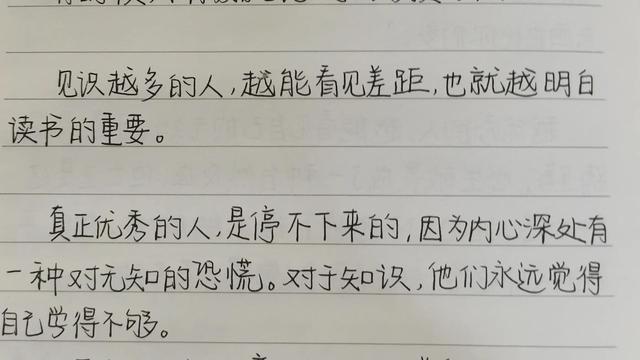 见识越多的人,越能看见差距,也就越明白
读书的重要。
真正优秀的人,是停不下来的,因为内心深处有
一种对无知的恐慌。对于知识,他们永远觉得
自己学得不够。